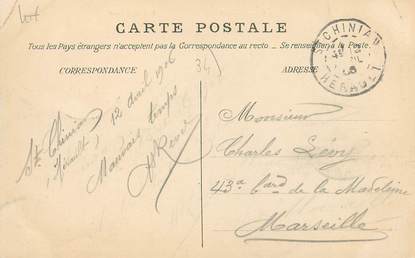 CARTE POSTALE
Tous les Pays étrangers n'acceptent pas la Correspondance au recto. _ Se renseigner à la Poste.
CORRESPONDANCE
ADRESSE
St Chinian
Hérault, 12 avril 1906
Mauvais temps
34
ST CHINIAN
HERAULT
Monsieur
Charles Lévy
43a Bard de la Madeleine
Marseille